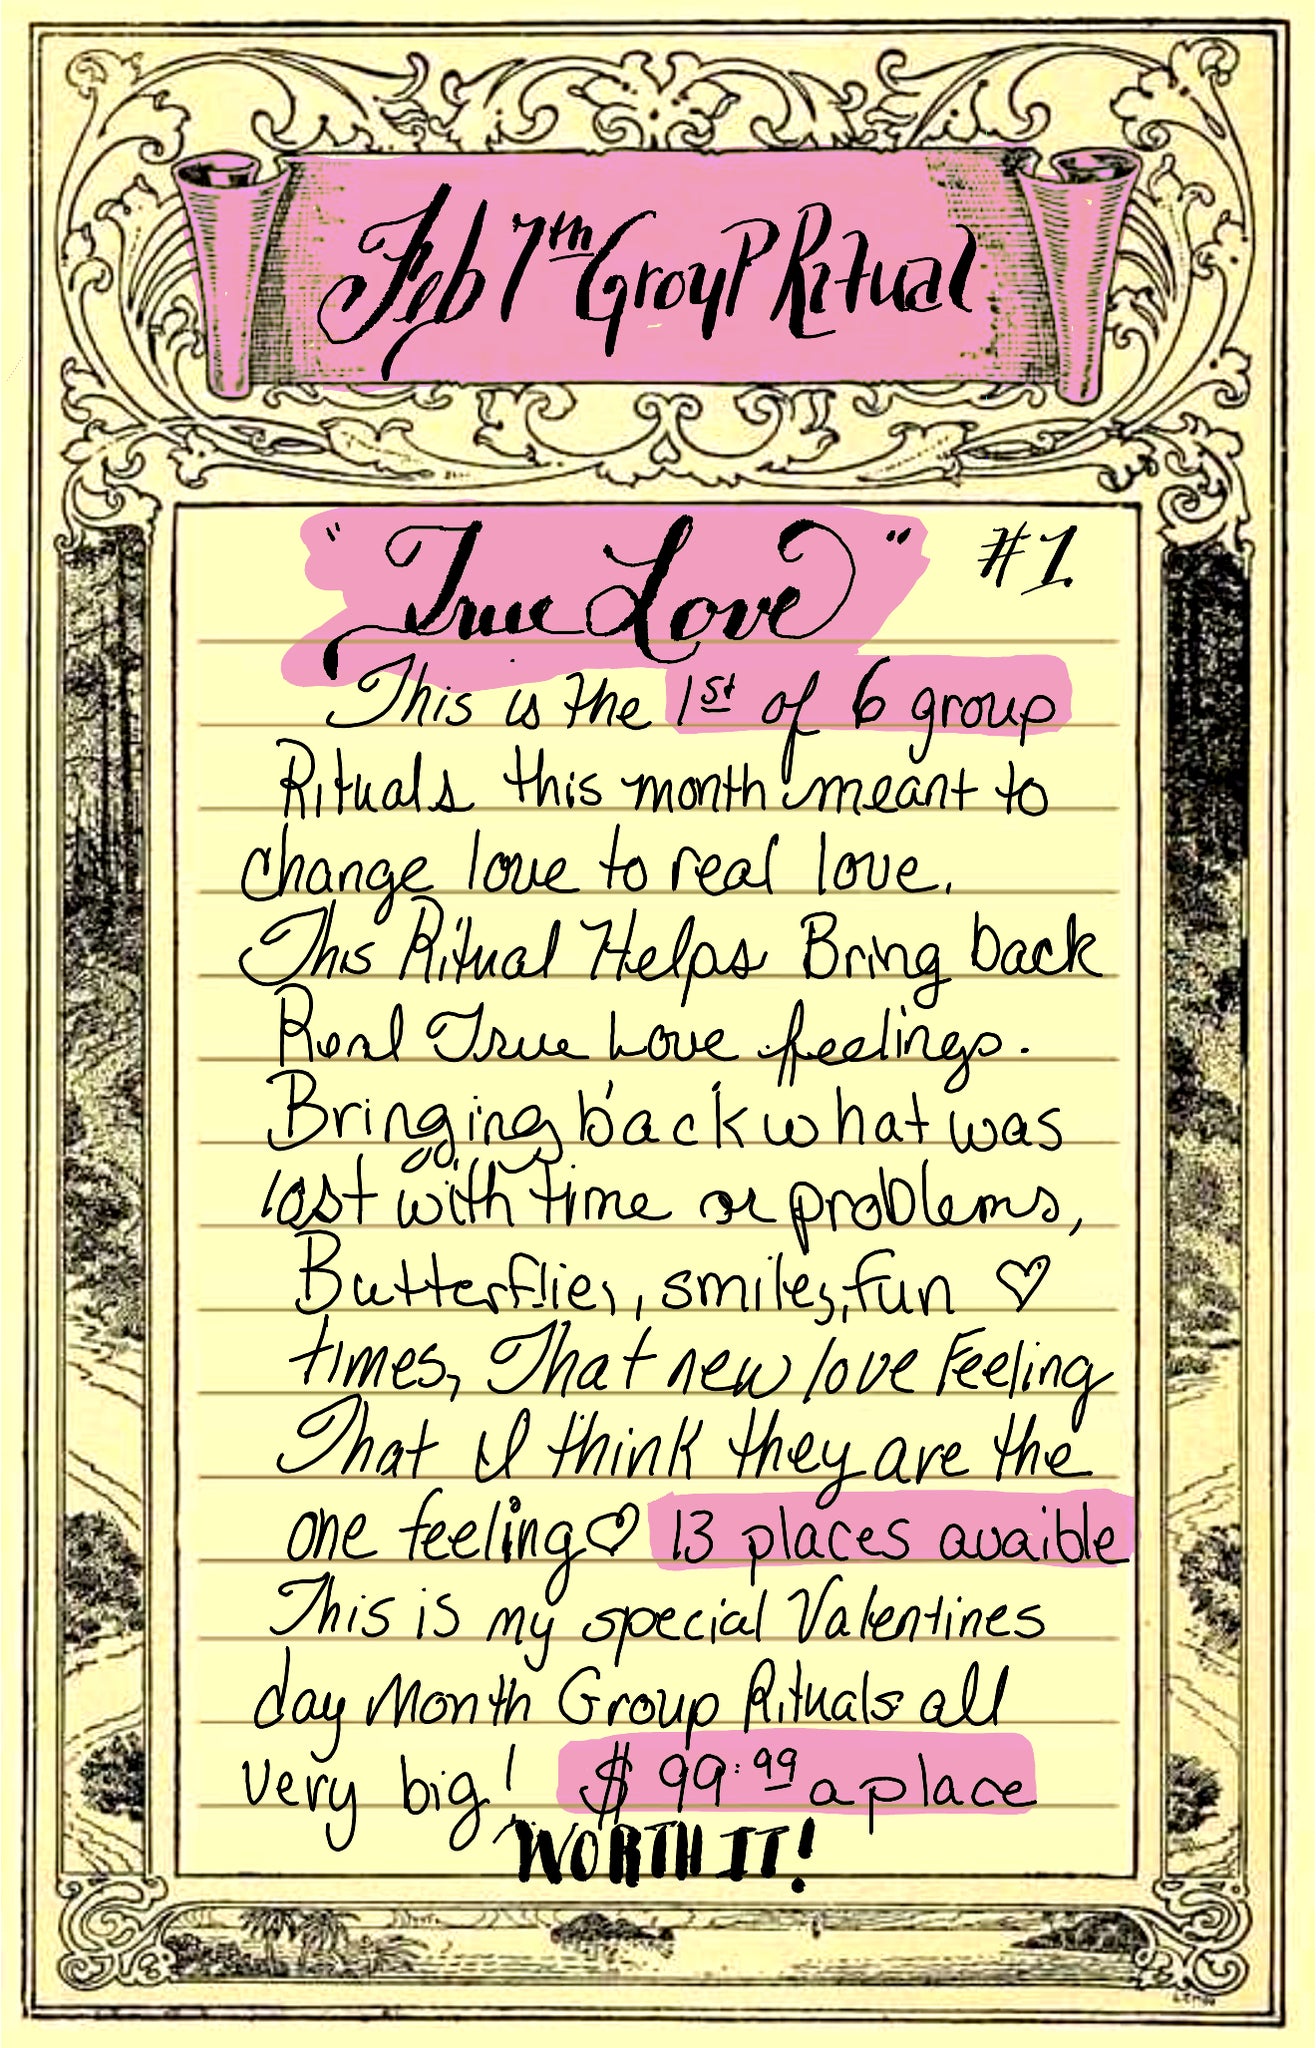 Feb 7th Group Ritual
"True Love" #1.
This is the 1st of 6 group
Rituals this month meant to
change love to real love.
This Ritual Helps Bring back
Real True Love feelings.
Bringing back what was
lost with time or problems,
Butterflies, smiles, fun ♡
times, That new love Feeling
That I think they are the
one feeling♡ 13 places avaible
This is my special Valentines
day Month Group Rituals all
very big! $ 99.99 a place
WORTH IT!